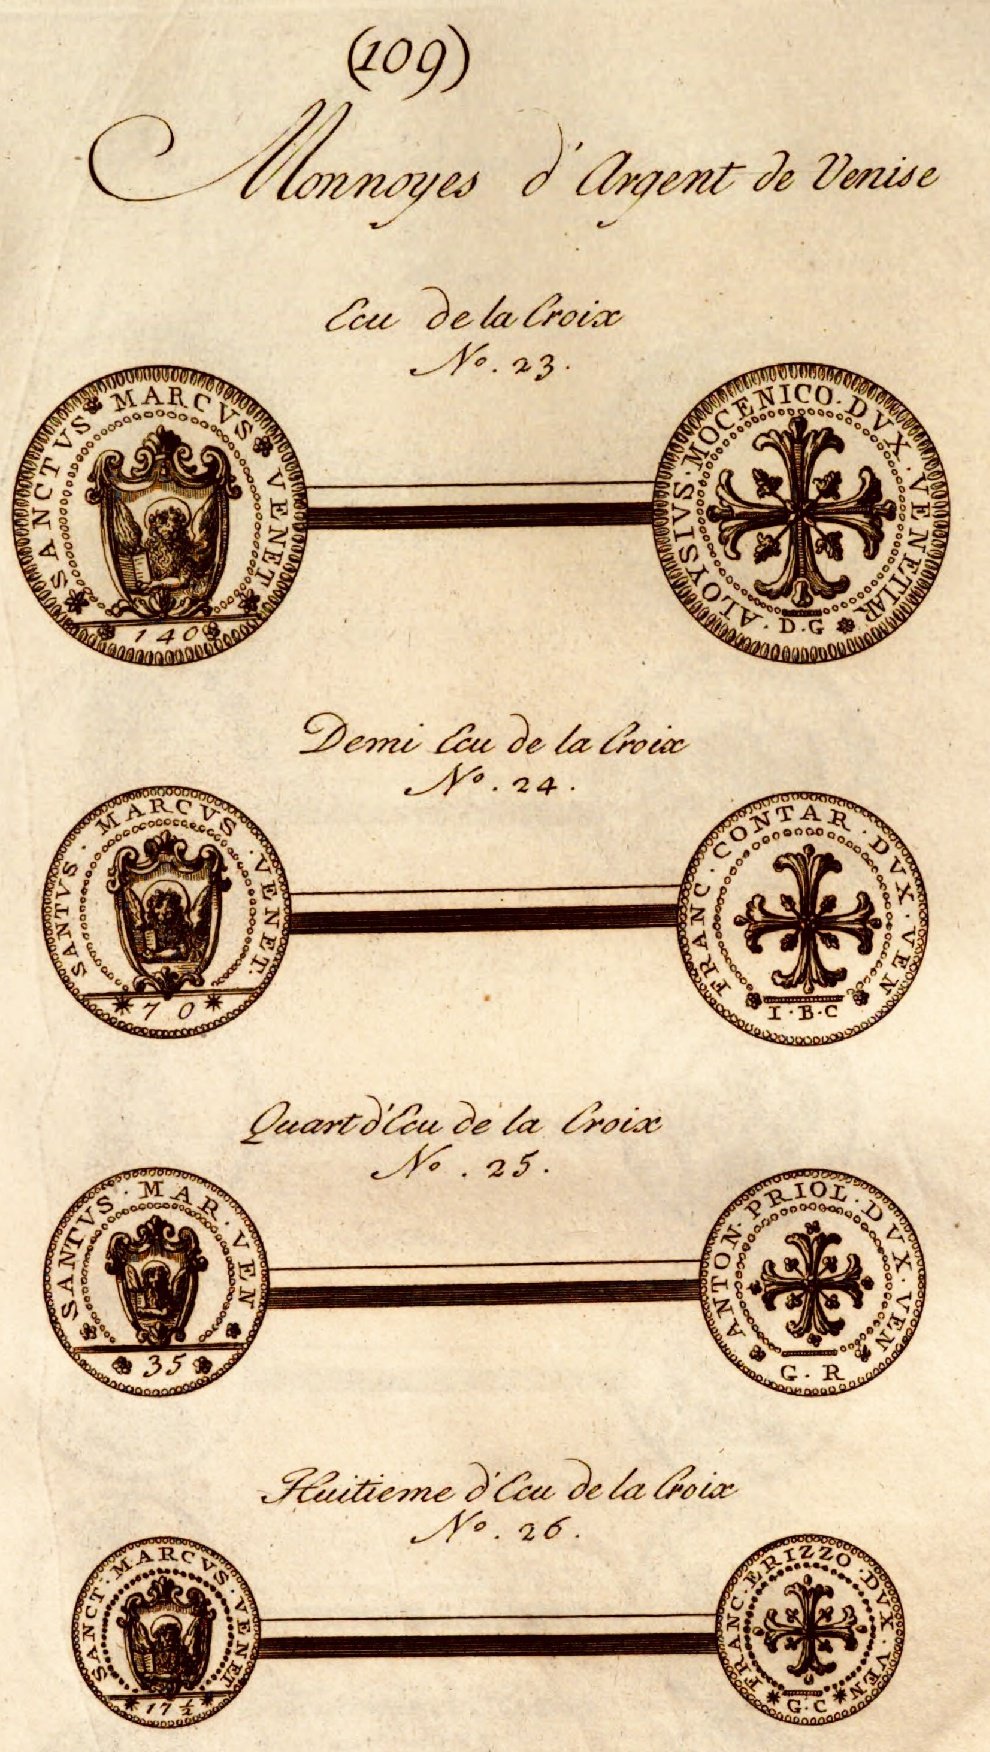 (109)
Monnoyes d'Argent de Venise
Ecu de la Croix
No. 23.
SANCTVS MARCVS VENET
140
ALOYSIVS · MOCENICO · DVX · VENETIAR
D · G
Demi Ecu de la Croix
No. 24.
SANTVS · MARCVS · VENET.
70
FRANC · CONTAR · DVX · VEN
I · B · C
Quart d'Ecu de la Croix
No. 25.
SANTVS · MAR · VEN
35
ANTON · PRIOL · DVX · VEN
G · R
Huitieme d'Ecu de la Croix
No. 26.
SANCT · MARCVS · VENET
17 1/2
FRANC · ERIZZO · DVX · VEN
G · C